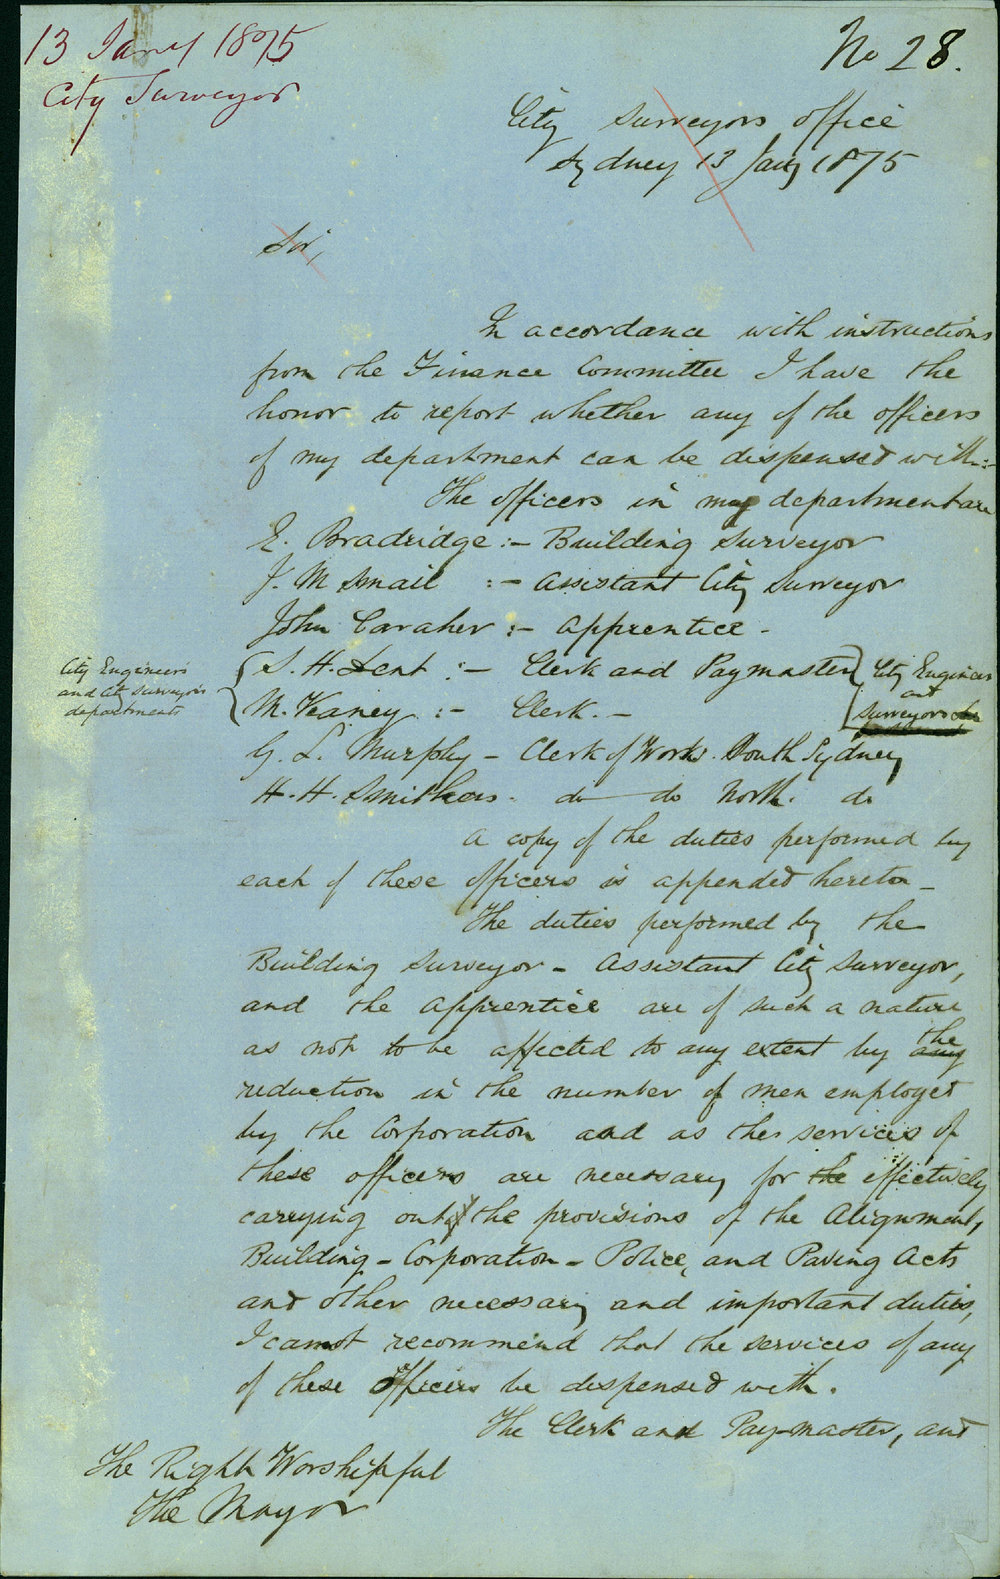 13 Jany 1875
City Surveyor
No 28.
City Surveyors Office
Sydney 13 Jany 1875
Sir,
In accordance with instructions
from the Finance Committee I have the
honor to report whether any of the officers
of my department can be dispensed with:-
The officers in my department are
E. Bradridge :- Building Surveyor
J. M Smail :- Assistant City Surveyor
John Caraher :- Apprentice -
City Engineers
and City Surveyors
departments
S. H. Lent :- Clerk and Paymaster
M. Keaney :- Clerk. -
City Engineers
and
Surveyors
G. L. Murphy - Clerk of Works. South Sydney
H. H. Smithers. do do North. do
A copy of the duties performed by
each of these officers is appended hereto -
The duties performed by the
Building Surveyor - Assistant City Surveyor,
and the Apprentice are of such a nature
as not to be affected to any extent by any the
reduction in the number of men employed
by the Corporation and as the services of
these officers are necessary for the effectively
carrying out of the provisions of the Alignment,
Building - Corporation - Police, and Paving Acts
and other necessary and important duties,
I cannot recommend that the services of any
of these Officers be dispensed with.
The Clerk and Pay-master, and
The Right Worshipful
The Mayor